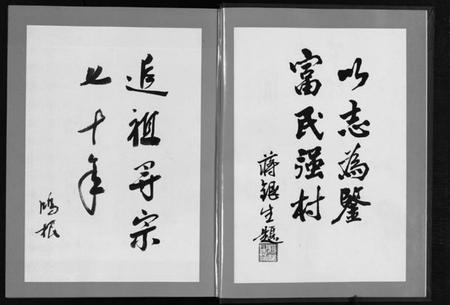 以志為鑒
富民强村
蒋银生题
追祖寻宗
七十年
鴻振